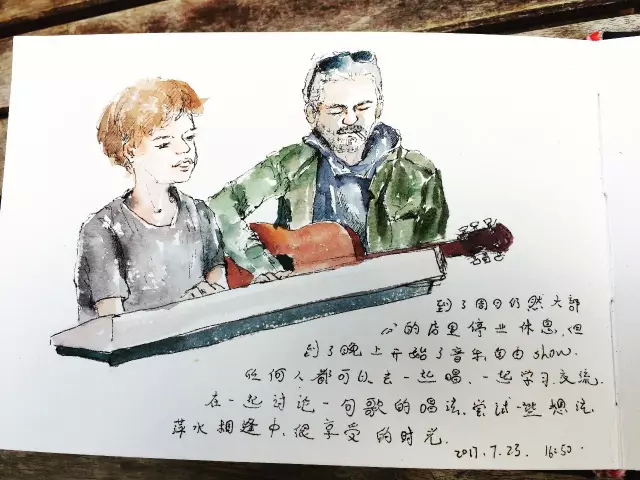 到了周日仍然大部
分的店里停业休息,但
到了晚上开始了音乐自由show.
任何人都可以去一起唱、一起学习交流.
在一起讨论一句歌的唱法,尝试一些想法.
萍水相逢中,很享受的时光.
2017.7.23. 16:50.